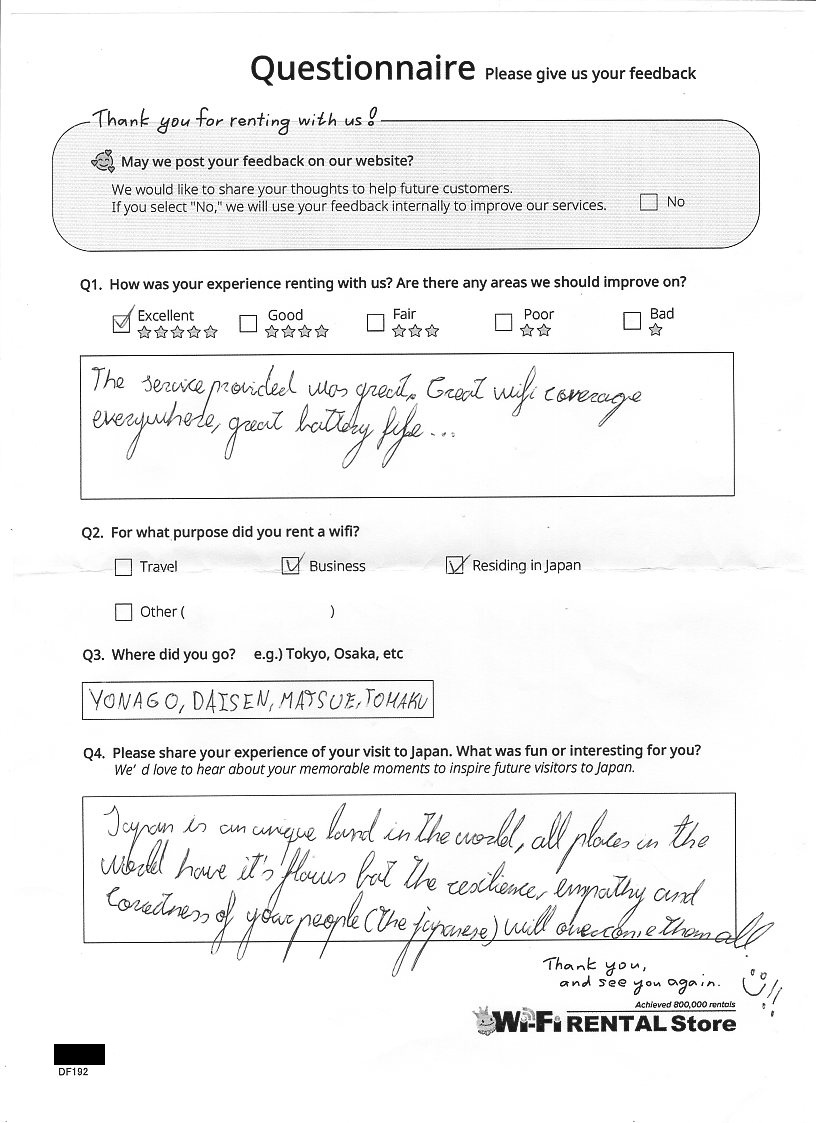 Questionnaire Please give us your feedback
Thank you for renting with us!
May we post your feedback on our website?
We would like to share your thoughts to help future customers.
If you select "No," we will use your feedback internally to improve our services.
No
Q1. How was your experience renting with us? Are there any areas we should improve on?
Excellent Good Fair Poor Bad
The service provided was great. Great wifi coverage
everywhere, great battery life...
Q2. For what purpose did you rent a wifi?
Travel Business Residing in Japan
Other ( )
Q3. Where did you go? e.g.) Tokyo, Osaka, etc
YONAGO, DAISEN, MATSUE, TOMAKU
Q4. Please share your experience of your visit to Japan. What was fun or interesting for you?
We'd love to hear about your memorable moments to inspire future visitors to Japan.
Japan is an unique land in the world, all places in the
world have it's flaws but the resilience, empathy and
of your people (the japanese) will overcome them all
Thank you,
and see you again.
Achieved 800,000 rentals
Wi-Fi RENTAL Store
DF192